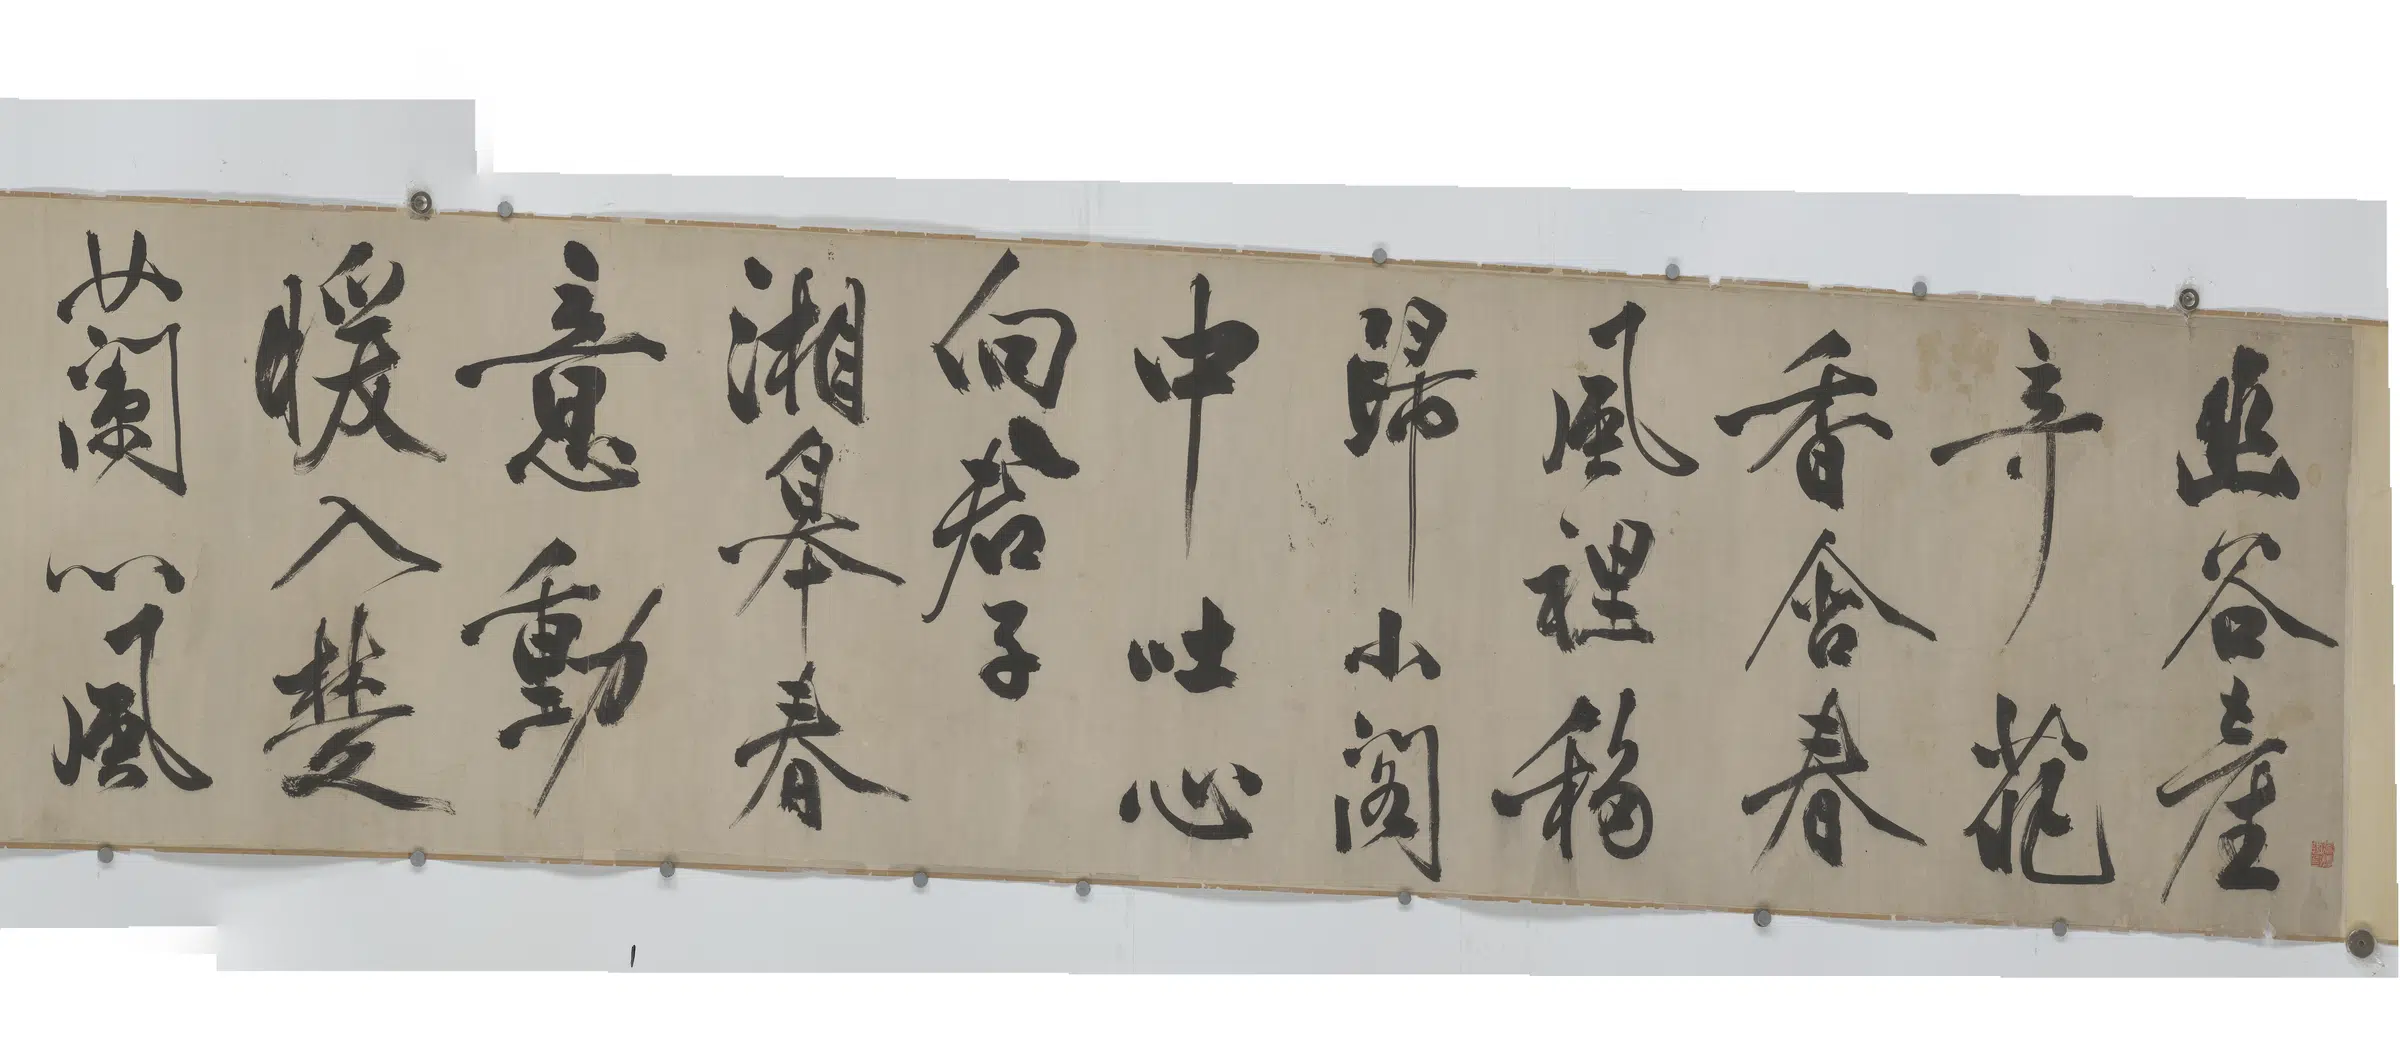 幽谷產
竒葩
香含春
風裡移
歸小閣
中吐心
向君子
湘皋春
意動
暖入楚
蘭心風